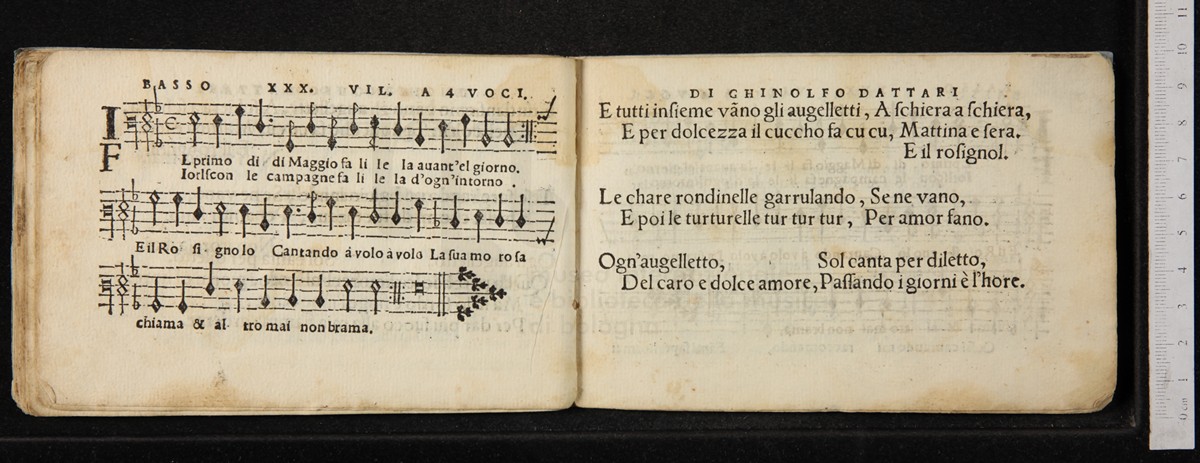 BASSO XXX. VIL. A 4 VOCI.
IL primo di di Maggio fa li le la auant'el giorno.
Fiorlscon le campagne fa li le la d'ogn'intorno .
E il Ro si- gnolo Cantando à volo à volo La sua mo rosa
chiama & al- tro mai non brama.
DI GHINOLFO DATTARI
E tutti insieme vãno gli augelletti, A schiera a schiera,
E per dolcezza il cuccho fa cu cu, Mattina e sera.
E il rosignol.
Le chare rondinelle garrulando, Se ne vano,
E poi le turturelle tur tur tur, Per amor fano.
Ogn'augelletto, Sol canta per diletto,
Del caro e dolce amore, Passando i giorni è l'hore.
museo
e biblioteca della musica
di bologna
0 cm 1 2 3 4 5 6 7 8 9 10 11